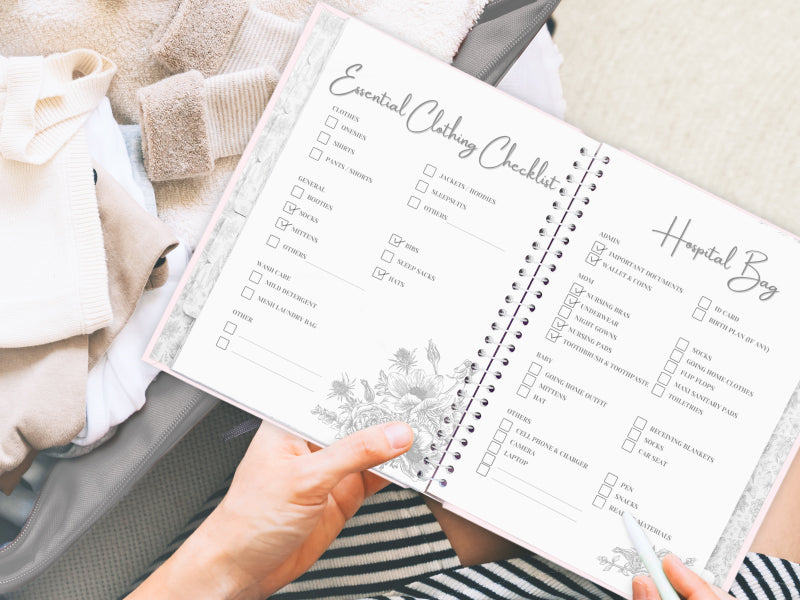 Essential Clothing Checklist
CLOTHES
ONESIES
SHIRTS
PANTS / SHORTS
JACKETS / HOODIES
SLEEPSUITS
OTHERS
GENERAL
BOOTIES
SOCKS
MITTENS
OTHERS
BIBS
SLEEP SACKS
HATS
WASH CARE
MILD DETERGENT
MESH LAUNDRY BAG
OTHER
Hospital Bag
ADMIN
IMPORTANT DOCUMENTS
WALLET & COINS
ID CARD
BIRTH PLAN (IF ANY)
MOM
NURSING BRAS
UNDERWEAR
NIGHT GOWNS
NURSING PADS
TOOTHBRUSH & TOOTHPASTE
SOCKS
GOING HOME CLOTHES
FLIP FLOPS
MAXI SANITARY PADS
TOILETRIES
BABY
GOING HOME OUTFIT
MITTENS
HAT
RECEIVING BLANKETS
SOCKS
CAR SEAT
OTHERS
CELL PHONE & CHARGER
CAMERA
LAPTOP
PEN
SNACKS
MATERIALS